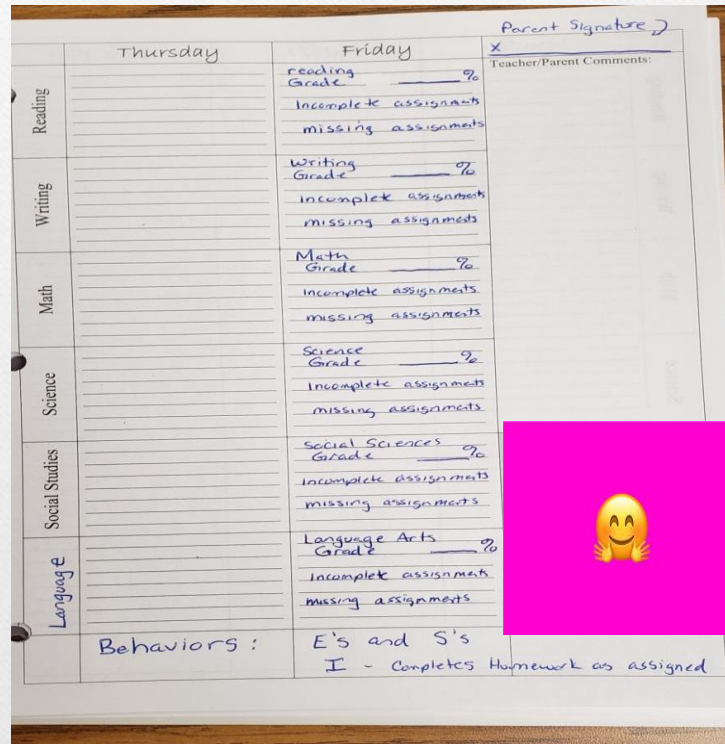 Parent Signature
Thursday
Friday
X
Teacher/Parent Comments:
Reading
reading
Grade ______%
Incomplete assignments
missing assignments
Writing
Writing
Grade ______%
incomplete assignments
missing assignments
Math
Math
Grade ______%
Incomplete assignments
missing assignments
Science
Science
Grade ______%
Incomplete assignments
missing assignments
Social Studies
Social Sciences
Grade ______%
incomplete assignments
missing assignments
Language
Language Arts
Grade ______%
Incomplete assignments
missing assignments
Behaviors: E's and S's
I - Completes Homework as assigned